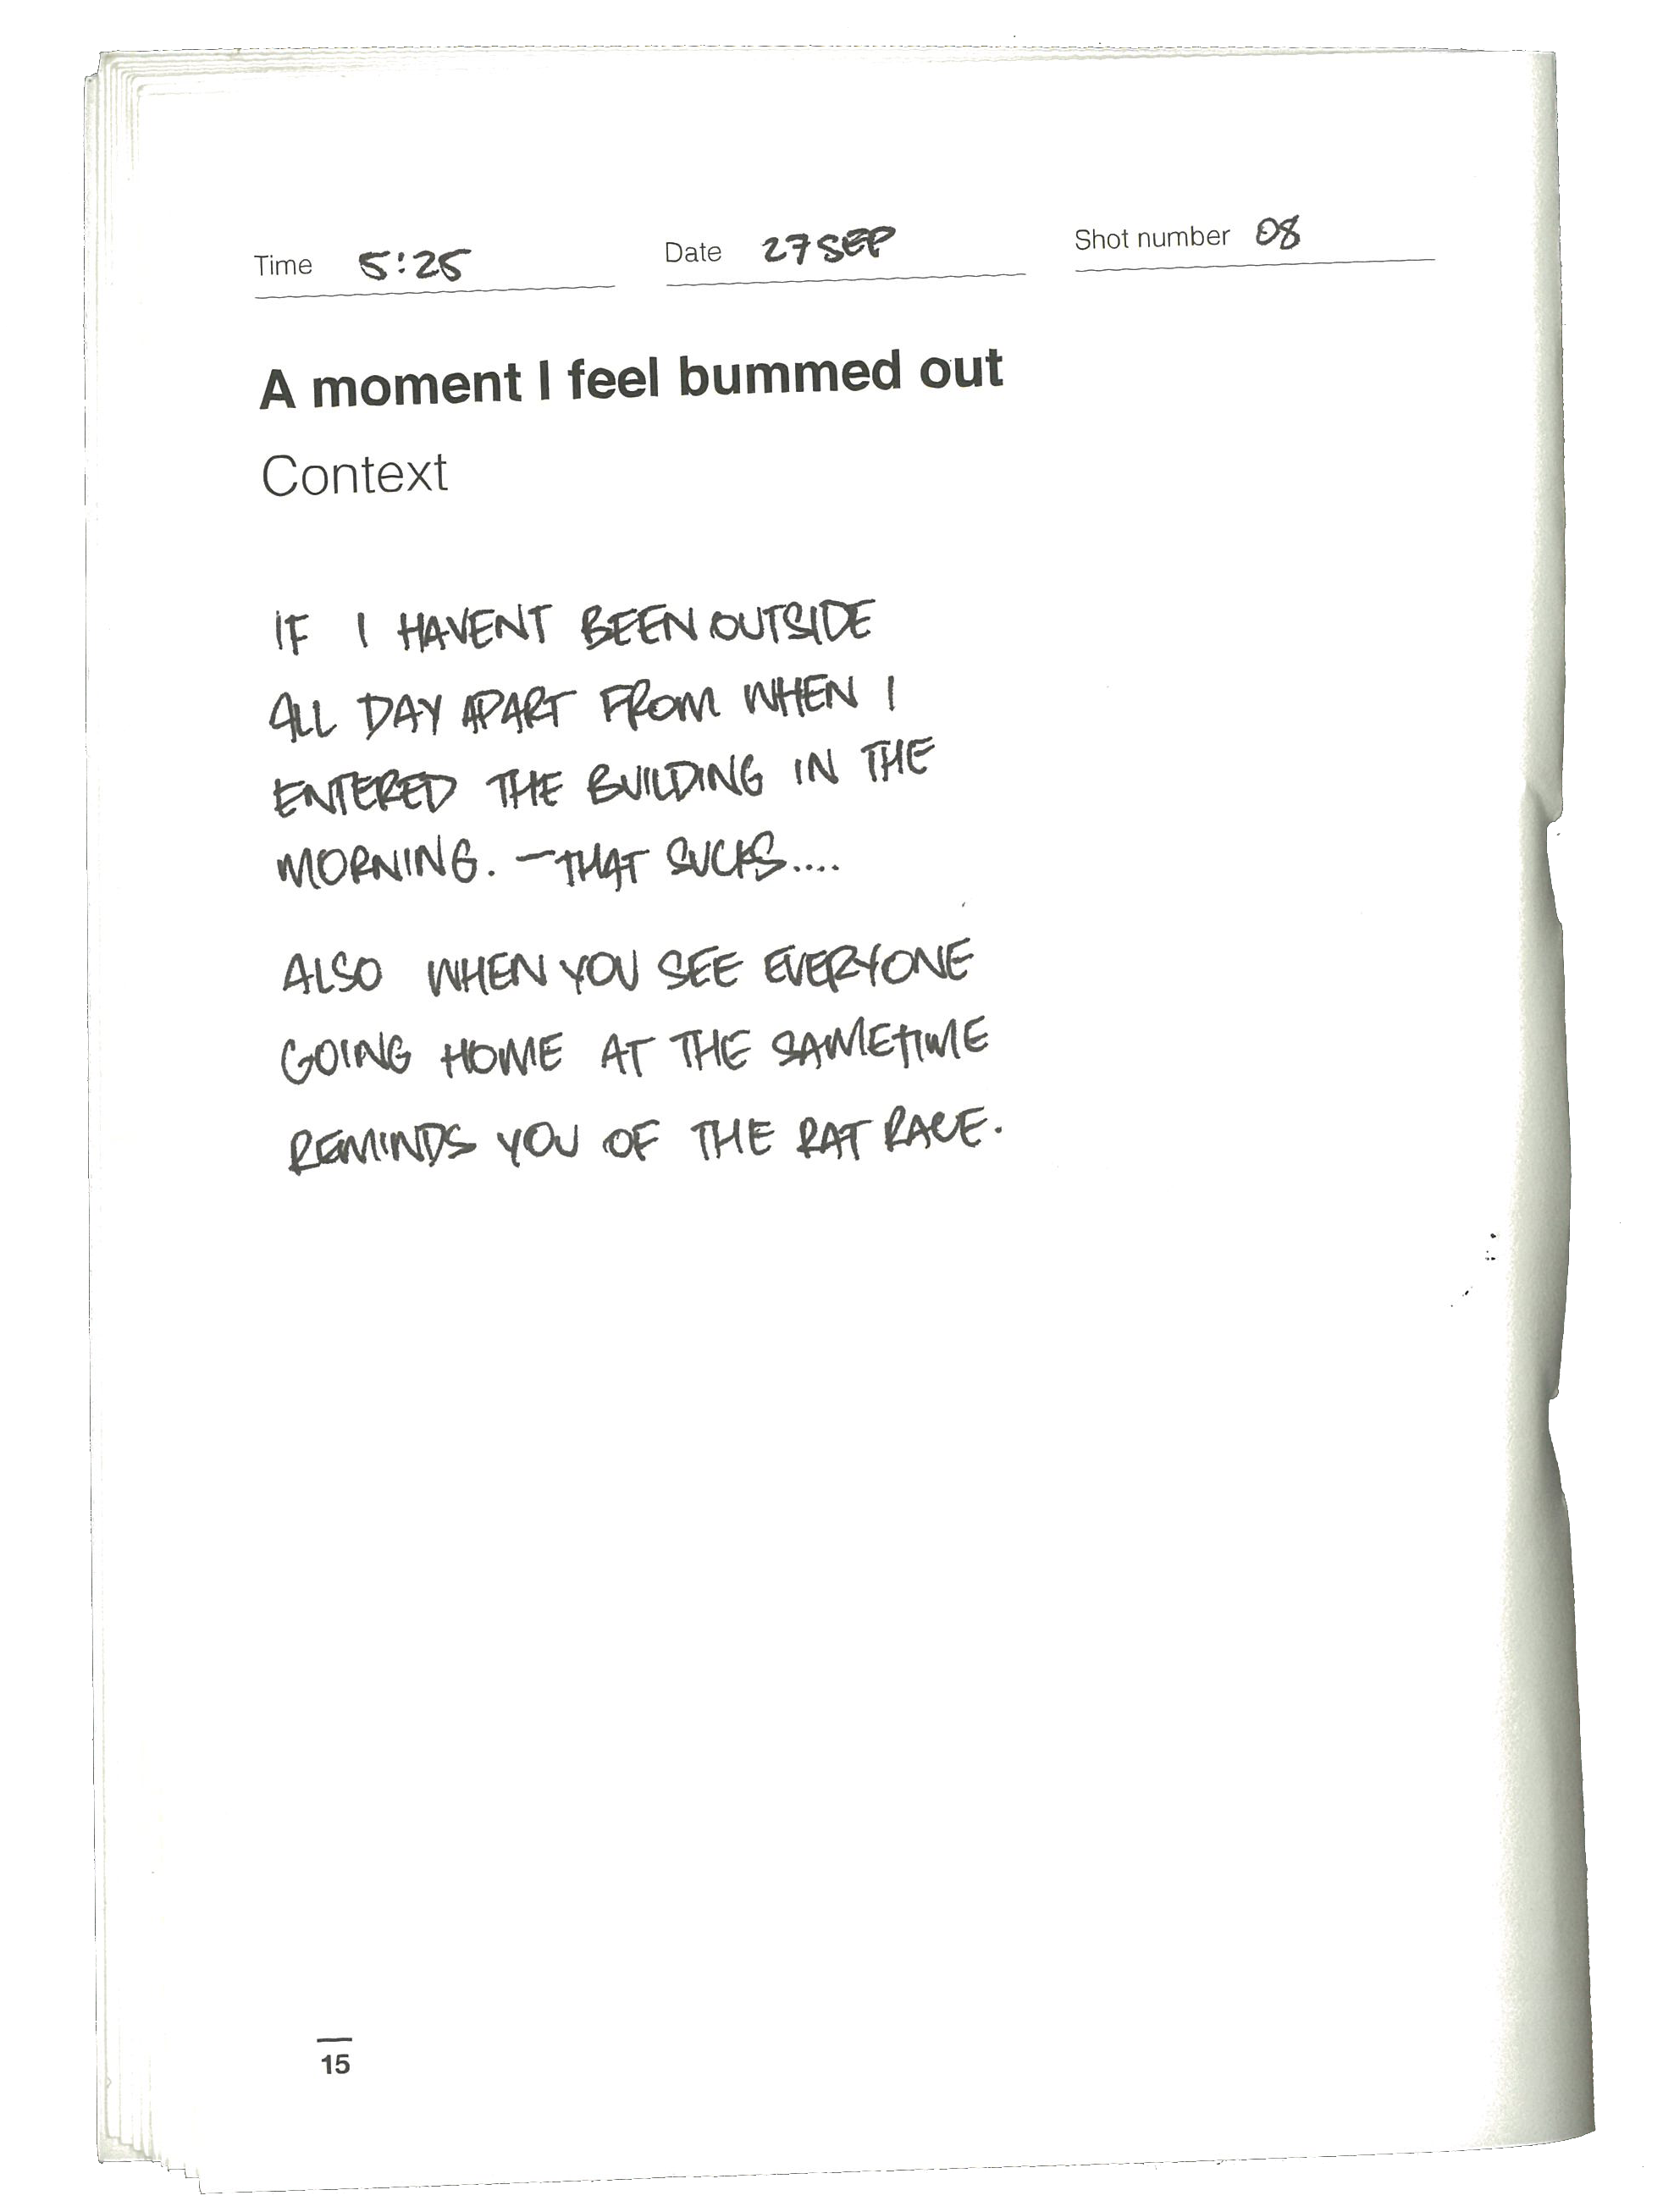 Time 5:25 Date 27 SEP Shot number 08
A moment I feel bummed out
Context
IF I HAVENT BEEN OUTSIDE
ALL DAY APART FROM WHEN I
ENTERED THE BUILDING IN THE
MORNING. – THAT SUCKS....
ALSO WHEN YOU SEE EVERYONE
GOING HOME AT THE SAMETIME
REMINDS YOU OF THE RAT RACE.
15